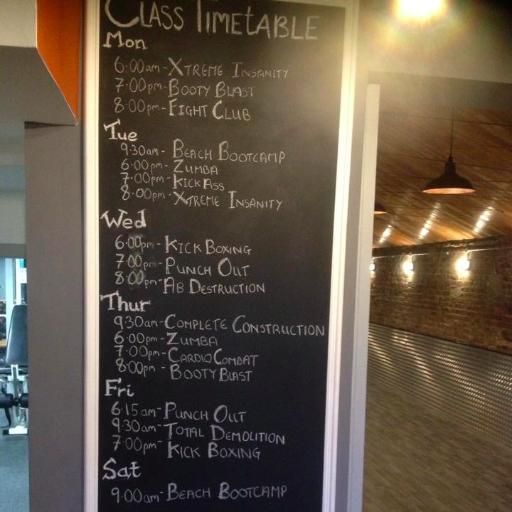 CLASS TIMETABLE
Mon
6:00am-XTREME INSANITY
7:00pm-BOOTY BLAST
8:00pm-FIGHT CLUB
Tue
9.30am-BEACH BOOTCAMP
6:00pm-ZUMBA
7:00pm-KICKASS
8:00pm-XTREME INSANITY
Wed
6:00pm-KICK BOXING
7:00pm-PUNCH OUT
8:00pm-AB DESTRUCTION
Thur
9.30am-COMPLETE CONSTRUCTION
6:00pm-ZUMBA
7:00pm-CARDIO COMBAT
8:00pm-BOOTY BLAST
Fri
6:15am-PUNCH OUT
9:30am-TOTAL DEMOLITION
7:00pm-KICK BOXING
Sat
9:00am-BEACH BOOTCAMP